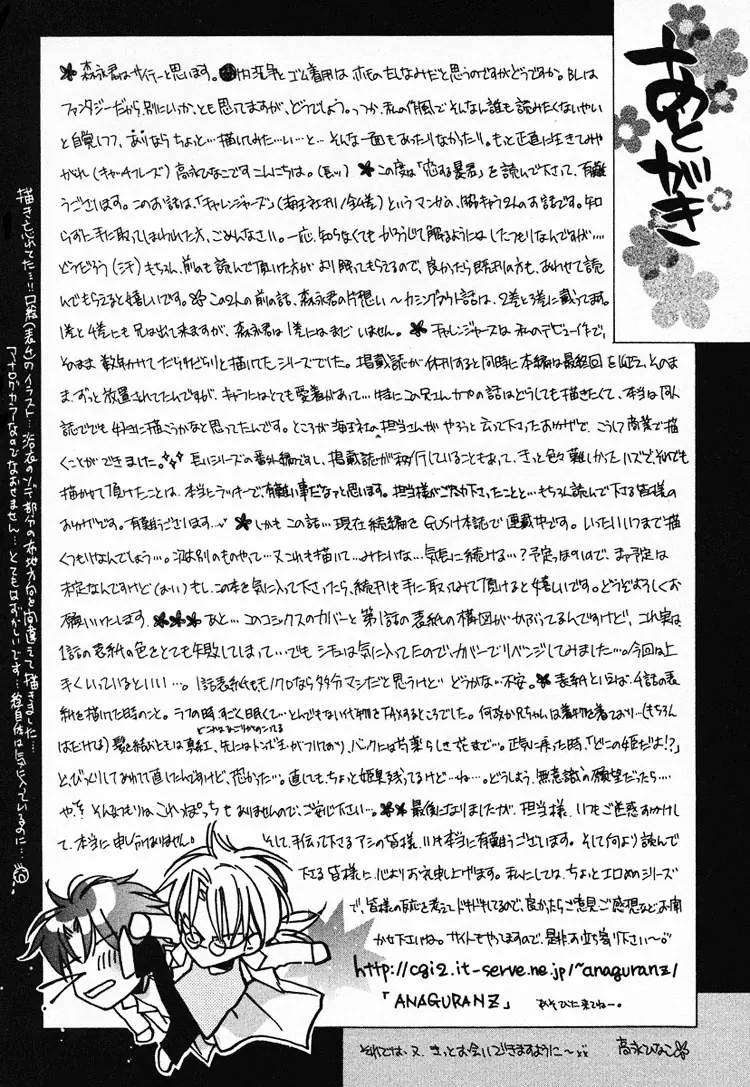 あとがき
✽森永君はサイテーと思います。●内洗浄とゴム着用は攻のたしなみだと思うのですがどうですか。BLは
ファンタジーだから別にいいか、とも思ってますが、どうでしょう。つか、私の画風でそんなん誰も読みたくないやい
と自覚しつつ、ありならちょっと…描いてみた…い…と…そんな一面もあったりなかったり。もっと正直に生きてみや
がれ(キャッチフレーズ)高永ひなこですこんにちは。(長ッ)✽この度は「恋する暴君」を読んで下さって、有難
うございます。このお話は、「チャレンジャーズ」(海王社刊/全4巻)というマンガの、脇キャラ2人のお話です。知
らずに手に取ってしまわれた方、ごめんなさい。一応、知らなくてもかろうじて解るようにはしたつもりなんですが…
どうだろう(汗)もちろん、前のも読んで頂いた方がより解ってもらえるので、良かったら既刊の方も、あわせて読
んでもらえると嬉しいです。✽この2人の前の話、森永君の片想い〜カミングアウト話は、2巻と3巻に載ってます。
1巻と4巻にも兄は出て来ますが、森永君は1巻にはまだいません。✽チャレンジャーズは私のデビュー作で、
そのまま数年かけてだらだらと描いてたシリーズでした。掲載誌が休刊すると同時に本編は最終回を迎え、そのま
ま、ずっと放置されてたんですが、キャラにはとても愛着があって…特にこの兄カップルの話はどうしても描きたくて、本当は同人
誌ででも好きに描こうかなと思ってたんです。ところが海王社の担当さんがやろうと云って下さったおかげで、こうして商業で描
くことができました。長いシリーズの番外編ですし、掲載誌が移行していることもあって、きっと色々難しかったハズで、それでも
描かせて頂けたことは、本当にラッキーで、有難い事だなァと思います。担当様がご尽力下さったことと…もちろん読んで下さる皆様の
おかげです。有難うございます…✽しかもこの話…現在続編をGUSH本誌で連載中です。いったいいつまで描
くつもりなんでしょう…。次は別のものやって…又これも描いて…みたいな…気長に続ける…?予定っぽいので、まァ予定は
未定なんですけど(おい)もし、この本を気に入って下さったら、続刊も手に取ってみて頂けると嬉しいです。どうぞよろしくお
願いいたします。✽✽✽あと…このコミックスのカバーと第1話の表紙の構図がかぶってるんですけど、これ実は
1話の表紙の色をとても失敗してしまって…でもシーンは気に入ってたので、カバーでリベンジしてみました…。今回は上
手くいっているといい…。1話表紙ももノクロなら多分マシだと思うけど…どうかない不安。✽表紙といえば、4話の表
紙を描いてた時のこと。ラフの時、すごく眠くて…とんでもない代物をFAXするところでした。何故か兄ちゃんは着物を着ており…(もちろん
はだけてる)髪を結ぶひもは真紅、先にはトンボ玉がついており、バックには芍薬らしき花まで…。正気に戻った時、「どこの姫だよ!?」
と、びっくりしてあわてて直したんですけど、恐かった…。直しても、ちょっと姫臭残ってるけど…ね…。どうしよう、無意識の願望だったら…
や、そんなつもりはこれっぽっちもありませんので、ご安心下さい…。✽✽最後になりましたが、担当様、いつもご迷惑おかけし
て、本当に申し訳ありません。そして、手伝って下さるアシの皆様、いつも本当に有難うございます。そして何より読んで
下さる皆様に、心よりお礼申し上げます。私にしては、ちょっとエロめのシリーズ
で、皆様の反応を考えてドキドキしてるので、良かったらご意見ご感想などお聞
かせ下さいね。サイトもやってますので、是非お立ち寄り下さい〜。
http://cgi2.it-serve.ne.jp/~anaguranz/
「ANAGURANZ」 あそびに来てねー。
それでは、又、きっとお会いできますように〜 高永ひなこ✽
描き忘れてた…!!口絵(表4)のイラスト…浴衣のソデ部分の布地方向を間違えて描きました…
「アナログカラー」なのでなおせません…とてもはずかしいです…絵自体は気に入っているのに…